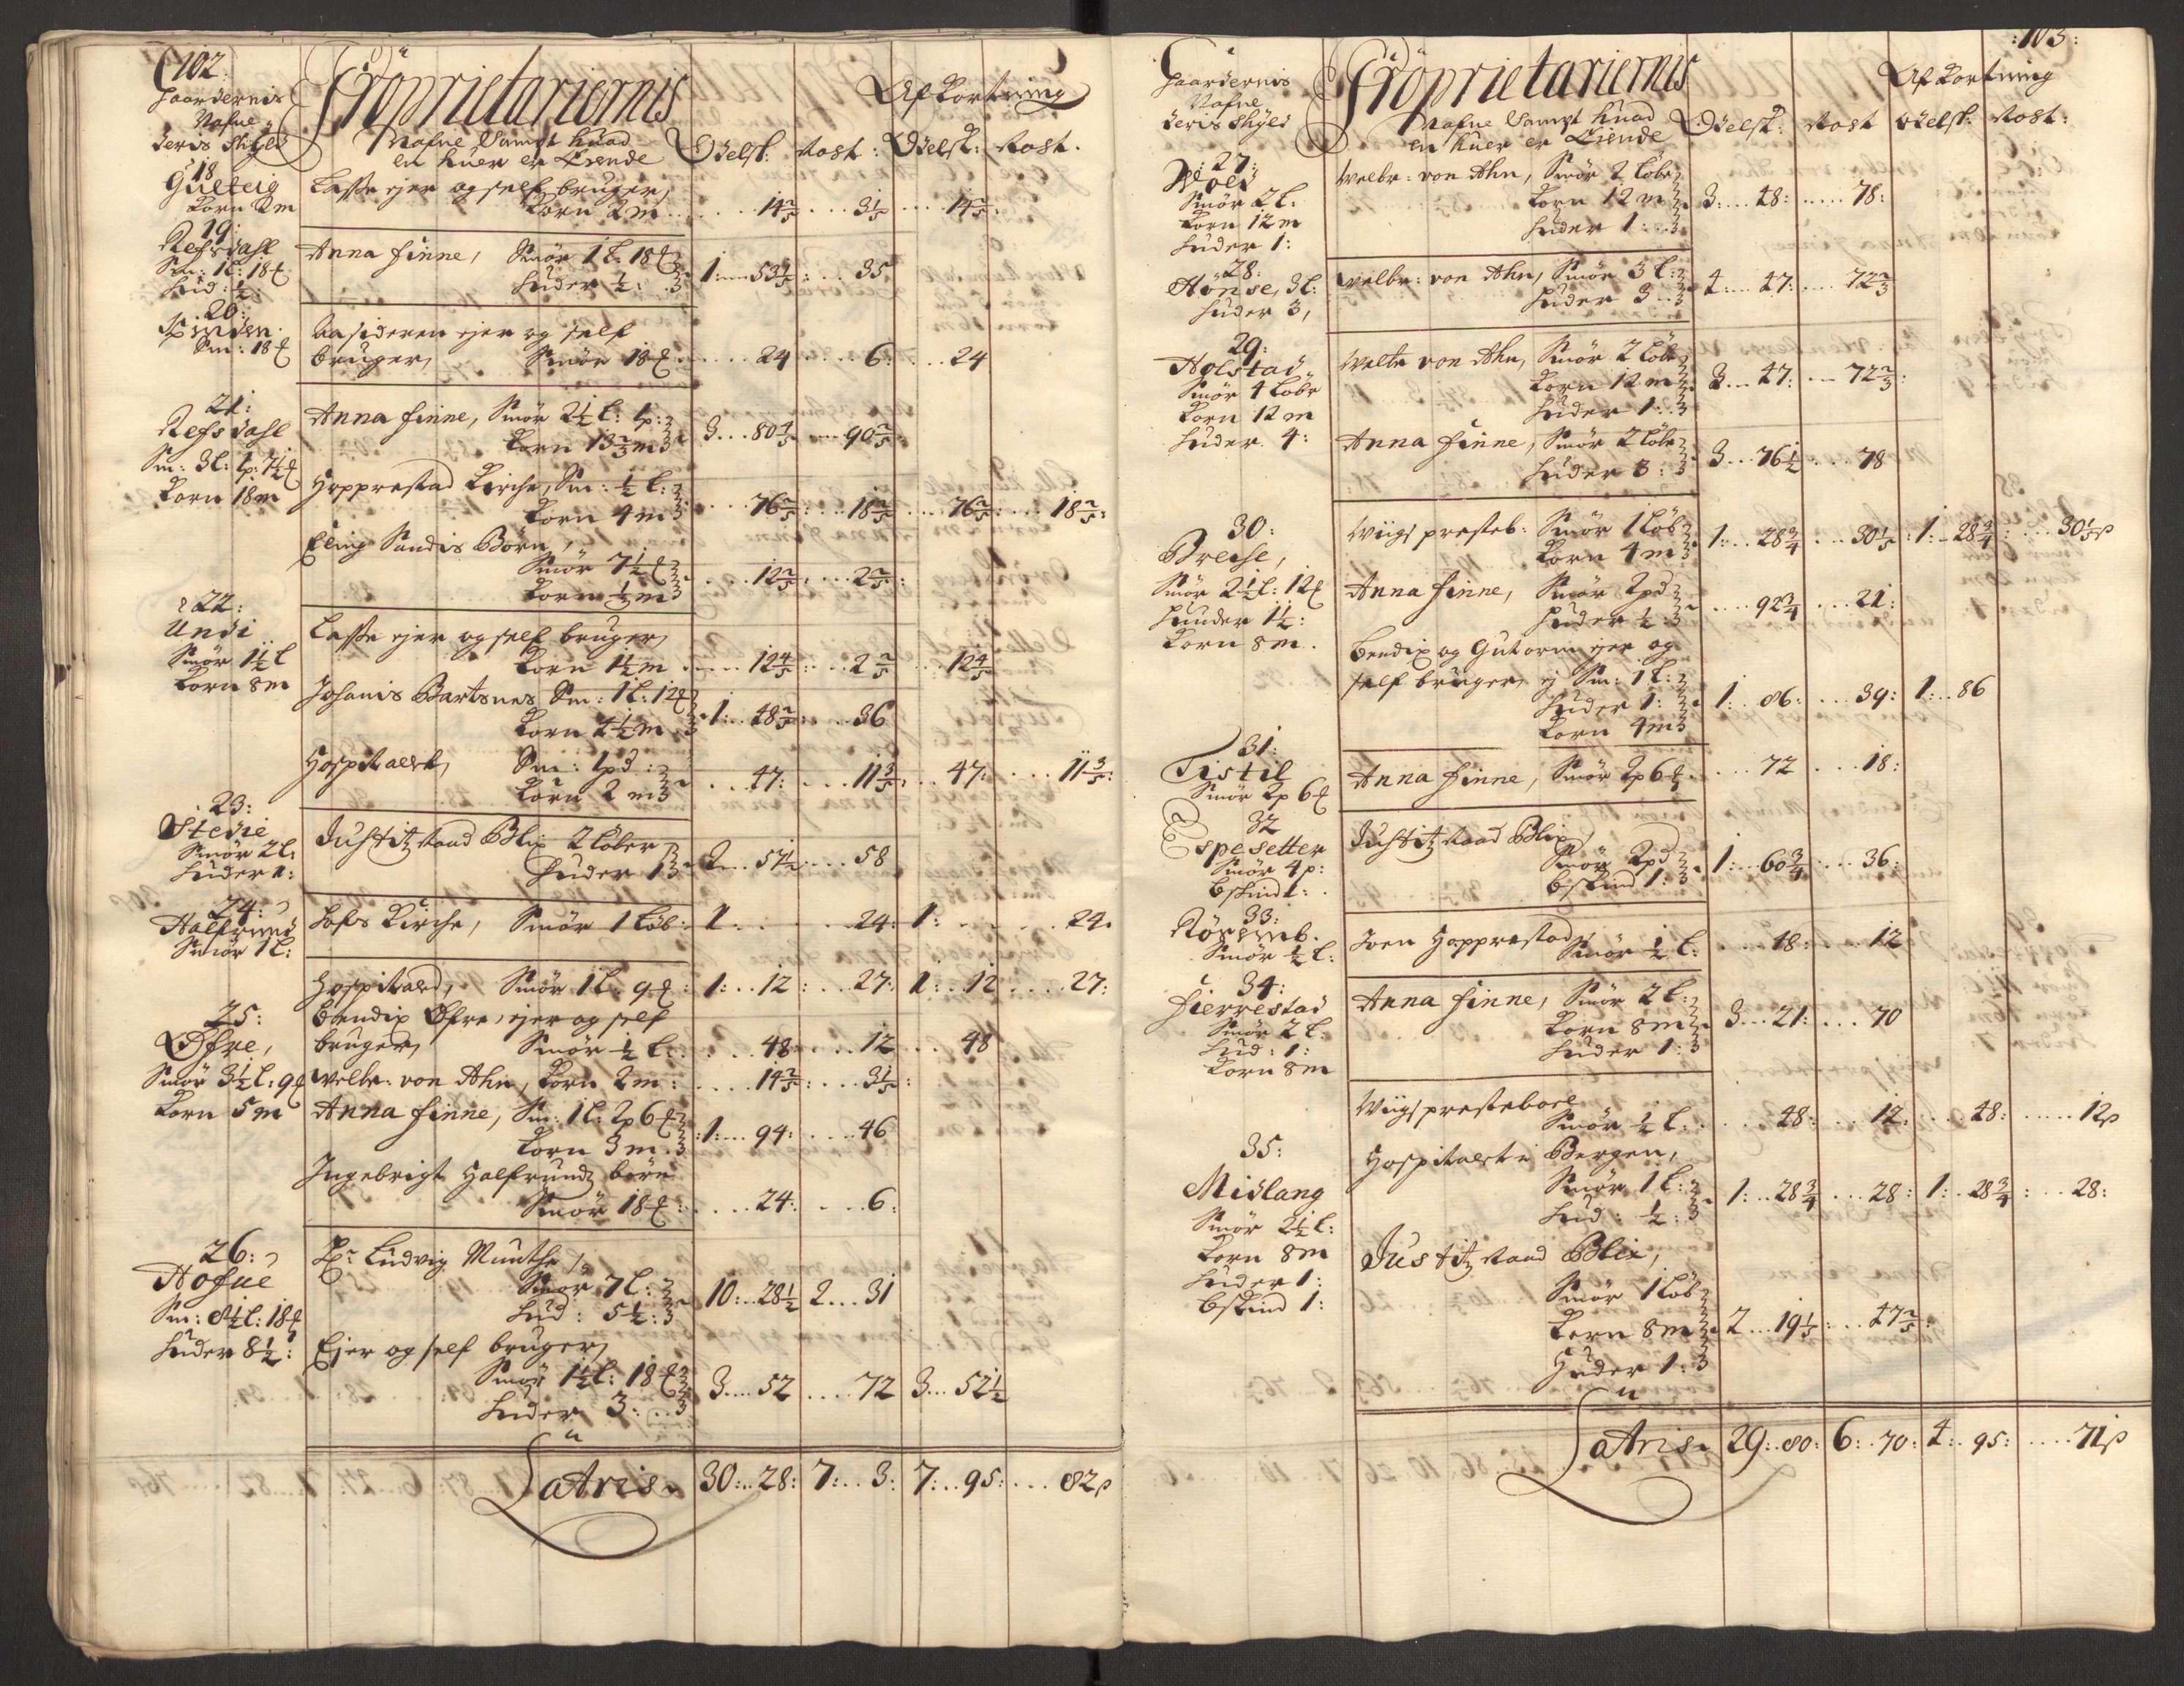 102.
Gaardernis
Nafne
deris Skyld
Proprietariernis
Nafne Sampt huad
en huer er Eiende
Afkortning
Odelsk: Rost: Odelsk: Rost.
18
Gulteig
Korn 2 m
Lasse ejer og self bruger,
Korn 2 m .... 14 2/5 ... 3 1/5 ... 14 2/5:
19:
Refsdahl
Sm: 1 l: 18 £
Hud: 1/2:
Anna finne, Smör 1 l: 18 £
Huder 1/2: 1:... 53 3/5 ... 35
20:
Pinden.
Sm: 18 £
Aasideren ejer og self
bruger, Smör 18 £ .... 24 ... 6: ... 24
21:
Refsdahl
Sm: 3 l: 1 p: 7 1/2 £
Korn 18 m
Anna finne, Smör 2 1/2 l: 1 p:
Korn 13 2/3 m 3... 80 4/5 ... 90 2/5
Hopprestad Kirche, Sm: 1/2 l:
Korn 4 m ... 76 2/5: ... 18 2/5 ... 76 2/5: ... 18 2/5:
Eling Sundis Börn,
Smör 7 1/2 £
Korn 1/3 m ... 12 2/5: ... 2 2/5:
22:
Undi
Smör 1 1/2 l
Korn 8 m
Lasse ejer og self bruger,
Korn 1 1/2 m .... 12 4/5: ... 2 2/5 ... 12 4/5
Johanis Bartsnes Sm: 1 l: 12 £
Korn 4 1/2 m 1:. 48 2/5: ... 36
Hospitalet, Sm: 1 pd:
Korn 2 m ... 47: ... 11 3/5: ... 47: ... 11 3/5:
23:
Stedie
Smör 2 l:
Huder 1:
Justitz Raad Blix 2 löber
Huder 1 2... 57 1/2: ... 58
24:
Halfrund
Smör 1 l:
Hofs Kirche, Smör 1 Löb: 1. ... 24: 1: ... 24.
25:
Öfre,
Smör 3 1/2 l: 9 £
Korn 5 m
Hospitaled, Smör 1 l: 9 £: 1:.. 12: ... 27: 1:. 12 ... 27:
Bendix Öfre, ejer og self
bruger, Smör 1/2 l: ... 48 ... 12 ... 48
Welbr: von Ahn, Korn 2 m: ... 14 2/5: ... 3 1/5:
Anna finne, Sm: 1 l: 2 p 6 £
Korn 3 m. 1:... 94: ... 46
Ingebrigt Halfrundz börn
Smör 18 £: ... 24: ... 6:
26:
Hofue
Sm: 8 1/2 l: 18 £
Huder 8 1/2:
Hr Ludvig Munthe,
Smör 7 l:
Hud: 5 1/2: 10:.. 28 1/2 2... 31
Ejer og self bruger,
Smör 1 1/2 l: 18 £
Huder 3: 3... 52 ... 72 3... 52 1/2
Latris 30:.. 28: 7:.. 3: 7:.. 95: ... 82 ß
:103:
Gaardernis
Nafne
deris Skyld
Proprietariernis
Nafne Sampt huad
en huer er Eiende
Afkortning
Odelsk: Rost Odelsk: Rost:
27:
Wold
Smör 2 l:
Korn 12 m
Huder 1:
Welbr: von Ahn, Smör 2 Löbe
Korn 12 m 3:... 48: ... 78:
Huder 1:
28:
Hönse, 3 l:
Huder 3,
Welbr: von Ahn, Smör 3 l:
Huder 3 4... 47: ... 72 2/3
29:
Holstad
Smör 4 Löbe
Korn 12 m
Huder 4:
Welbr von Ahn, Smör 2 Löbe
Korn 12 m 3... 47: ... 72 2/3:
Huder 1:
Anna finne, Smör 2 Löbe
Huder 3: 3... 76 1/2 ... 78
30:
Breche,
Smör 2 1/2 l: 12 £
Hunder 1 1/2:
Korn 8 m.
Wiigs presteb: Smör 1 Löb
Korn 4 m 1:.. 28 3/4 ... 30 1/5: 1:. 28 3/4: ... 30 1/5 ß
Anna finne, Smör 2 pd
Huder 1/2: ... 92 3/4 ... 21:
Bendix og Gutorm ejer og
self bruger, Sm: 1 l:
Huder 1: 1:. 86: ... 39: 1:.. 86
Korn 4 m
31:
Tistil
Smör 2 p 6 £
Anna finne, Smör 2 p 6 £. ... 72 ... 18:
32
Espesetter
Smör 4 p:
Bskind 1:
Justitz Raad Blix,
Smör 2 pd
Bskind 1: 1:.. 60 3/4 ... 36:
33:
Smör 1/2 l:
Joen Hopprestad,
Smör 1/2 l: ... 48: ... 12
34:
Fierrestad
Smör 2 l:
Hud: 1:
Korn 8 m
Anna finne, Smör 2 l:
Korn 8 m 3... 21: ... 70
Huder 1:
35:
Midlang
Smör 2 1/2 l:
Korn 8 m
Huder 1:
Bskind 1:
Wiigs presteboel
Smör 1/2 l: ... 48: ... 12: ... 48: ... 12 ß
Hospitalet i Bergen,
Smör 1 l:
Hud: 1/2: 1:.. 28 3/4 ... 28: 1:. 28 3/4: ... 28:
Justitz Raad Blix,
Smör 1 Löb
Korn 8 m 2... 19 1/5: ... 47 2/5:
Huder 1:
Latris 29:. 80: 6:. 70: 4:. 95: ... 71 ß